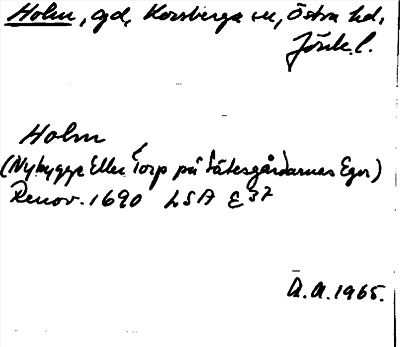 Holm, gd, Korsberga sn, Östra hd,
Jönk.l.
Holm
(Nybygge Eller Torp på Sätesgårdarnas Egor)
Renov. 1690 LSA E 37
A.A. 1965.